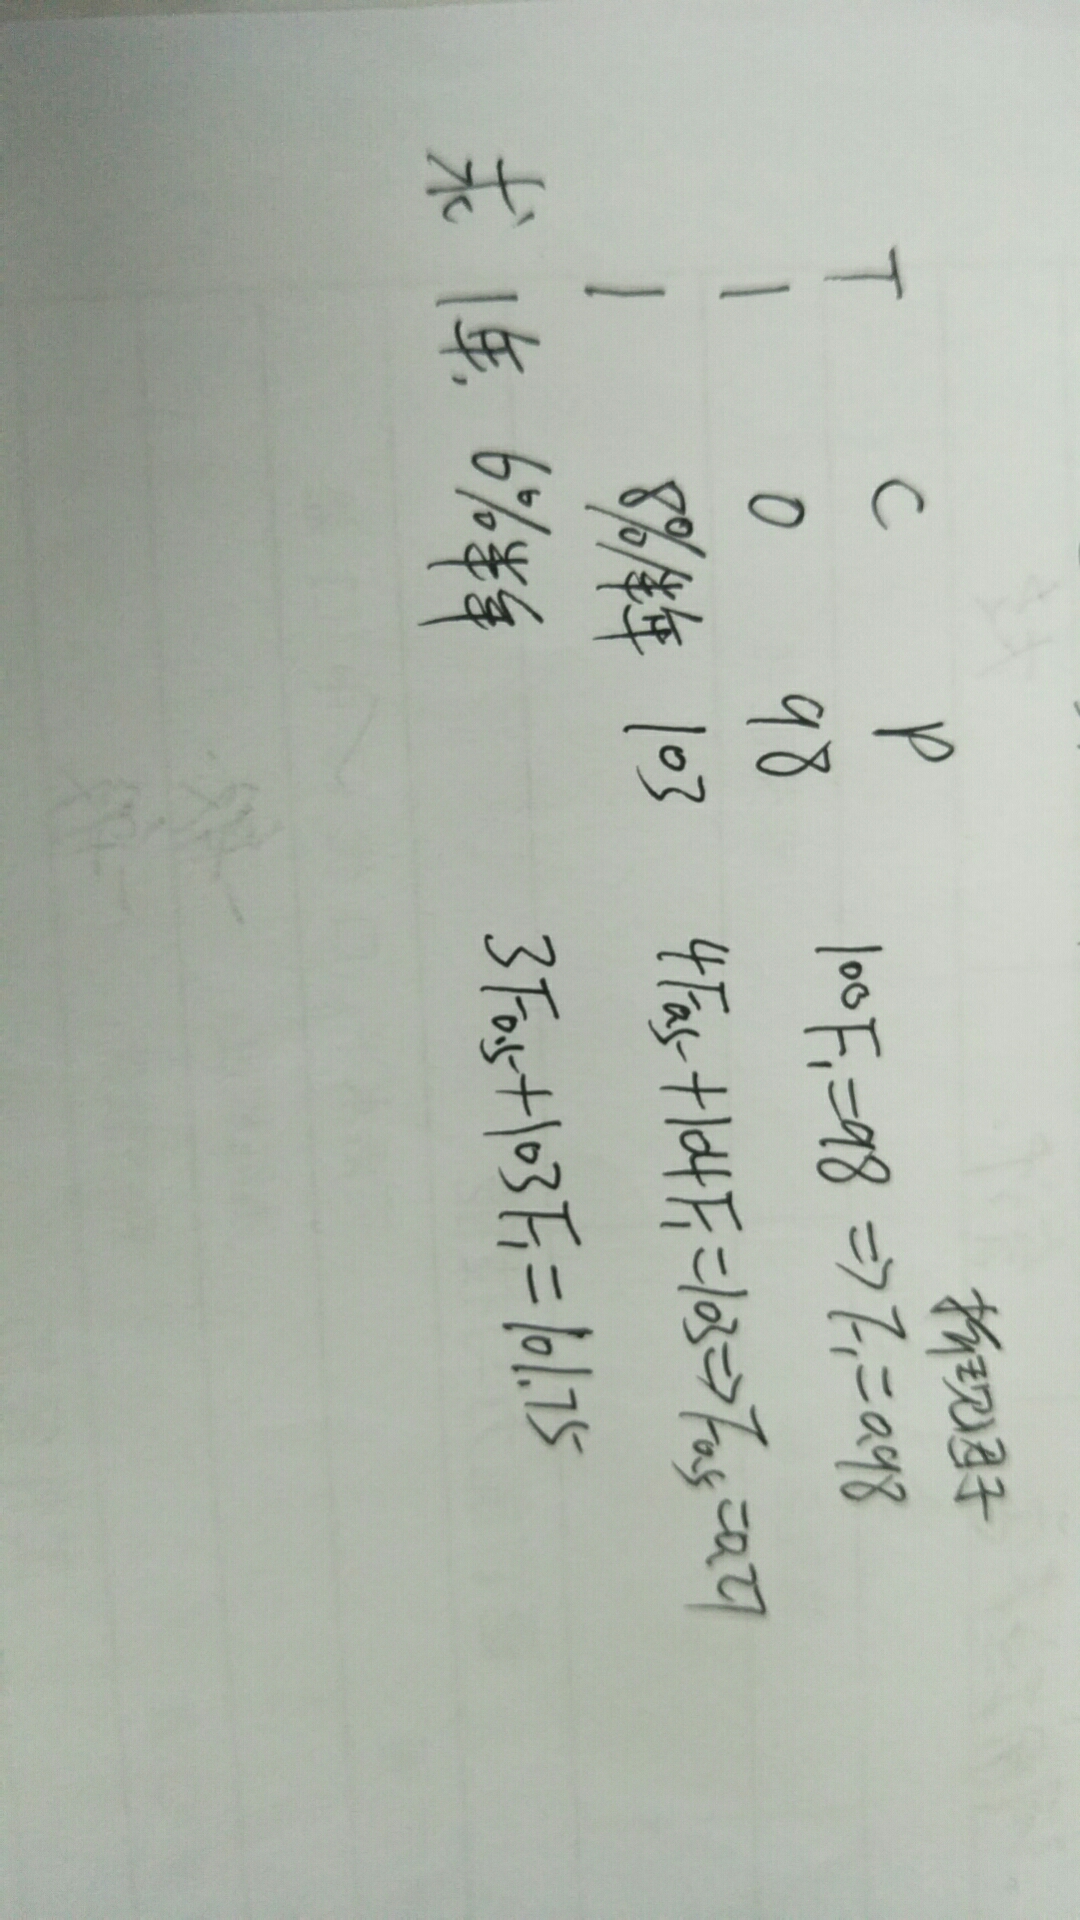 折现因子
T C P
1 0 98 100F₁=98 => F₁=0.98
1 8%/半年 103 4F0.5+104F₁=103=>F0.5=0.27
求 1年. 6%半年 3F0.5+103F₁=101.75